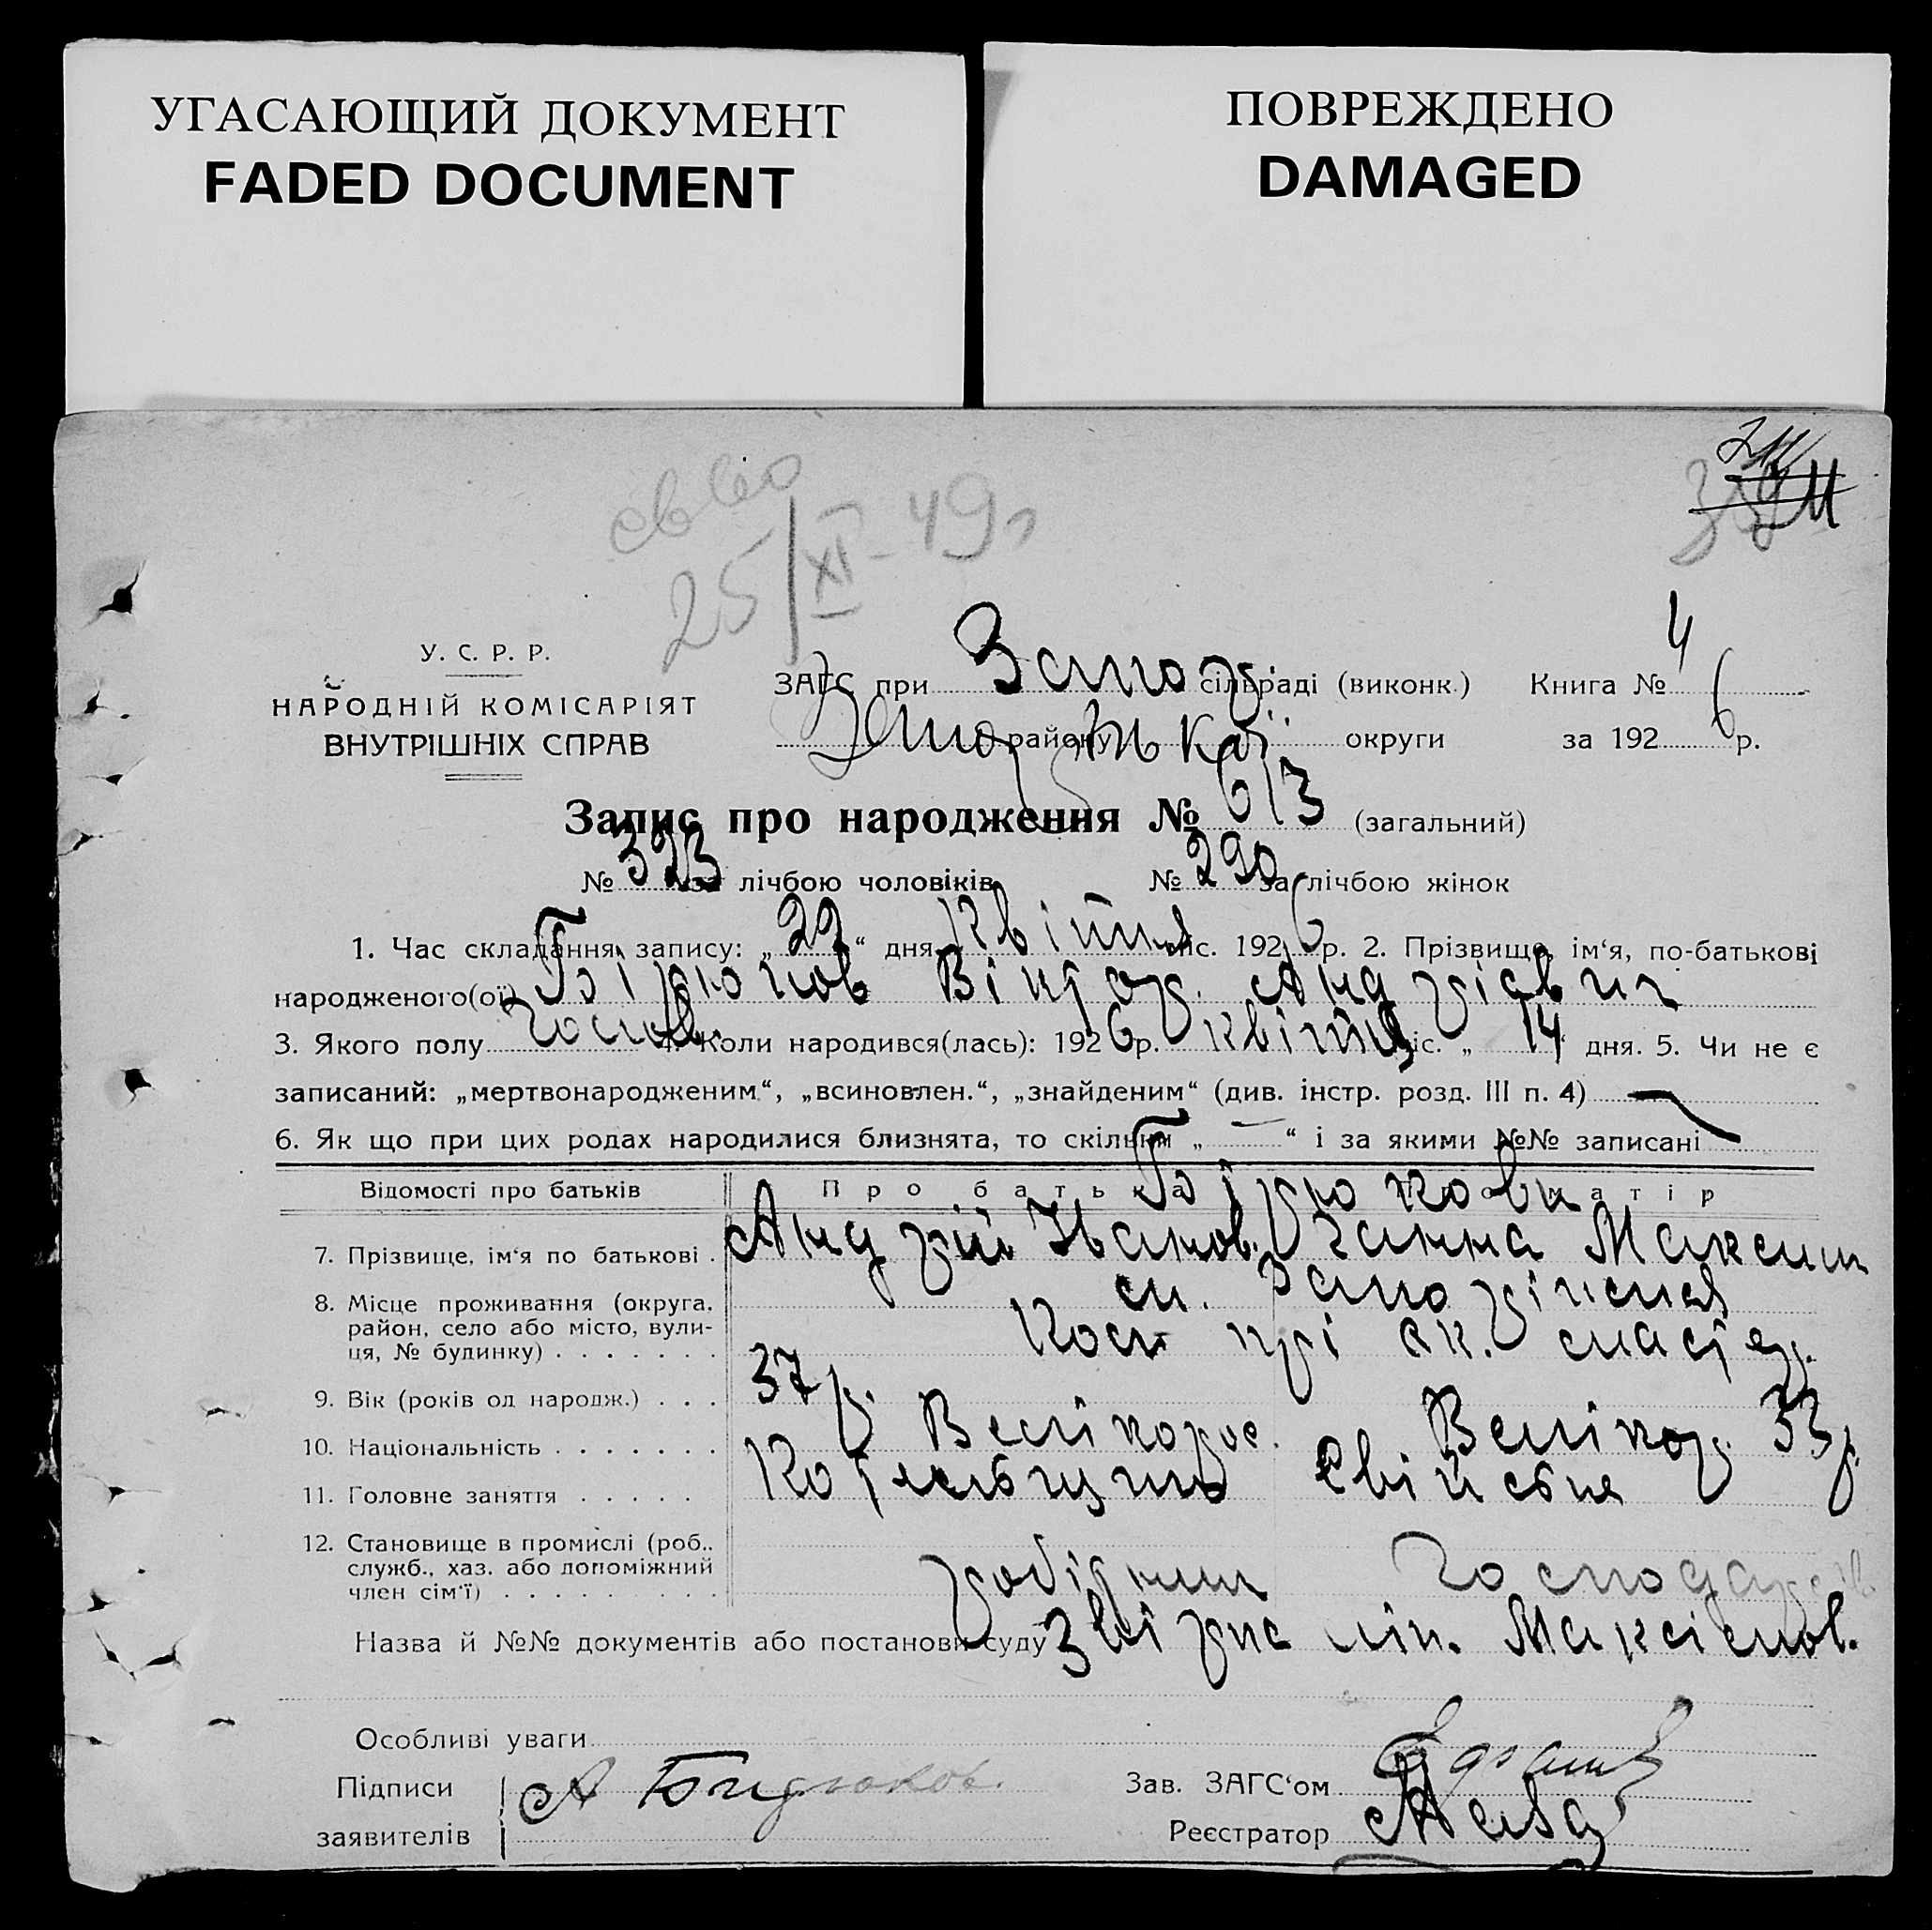 УГАСАЮЩИЙ ДОКУМЕНТ
FADED DOCUMENT
ПОВРЕЖДЕНО
DAMAGED
25/XI-49г
У. С. Р. Р.
НАРОДНІЙ КОМІСАРІЯТ
ВНУТРІШНІХ СПРАВ
ЗАГС при Запор сільраді (виконк.) Книга № 4
Запорізької району округи за 1926 р.
Запис про народження № 613 (загальний)
№ 323 за лічбою чоловіків № 290 за лічбою жінок
1. Час складання запису: „22“ дня Квітня міс. 1926 р. 2. Прізвище, ім‘я, по-батькові
народженого(ої) Бірюков Віктор Андрієвич
3. Якого полу чолов. 4. Коли народився(лась): 1926 р. квітня міс. „14“ дня. 5. Чи не є
записаний: „мертвонародженим“, „всиновлен.“, „знайденим“ (див. інстр. розд. III п. 4)
6. Як що при цих родах народилися близнята, то скільки „—“ і за якими №№ записані
Відомості про батьків Про батька Про матір
Бірюкови
7. Прізвище, ім‘я по батькові . Андрій Іванов. Ганна Максим
8. Місце проживання (округа, район, село або місто, вулиця, № будинку) . . . . . . . ст. Запоріжжя
9. Вік (років од народж.) . . . 37 р. 33 р.
10. Національність . . . . . . . Велікорос. Велікор.
11. Головне заняття . . . . . Котельщик Свійскя
12. Становище в промислі (роб., служб., хаз. або допоміжний член сім‘ї) . . . . . . . . . робітник господарств
Назва й №№ документів або постанови суду З вірно лік. Максімов.
Особливі уваги
Підписи заявителів А Бирюков.
Зав. ЗАГС‘ом
Реєстратор